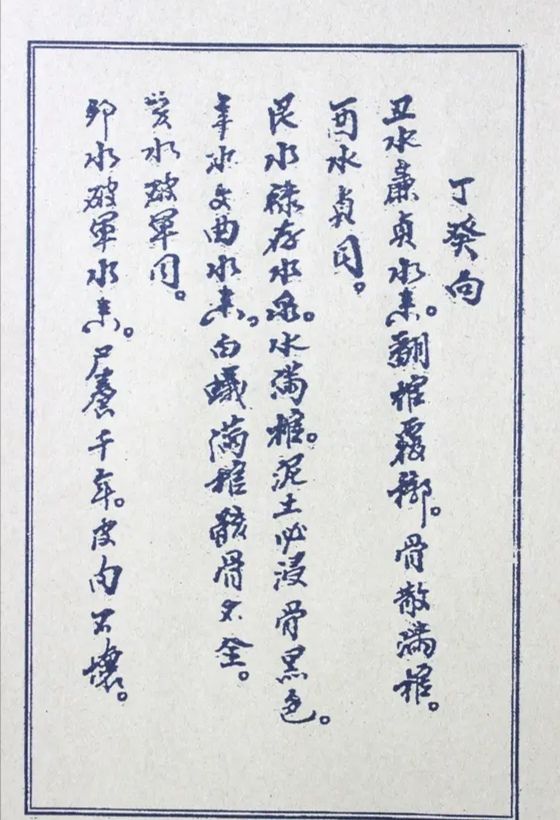 丁癸向
丑水廉貞水来。翻棺覆槨。骨散满棺。
酉水貞同。
艮水祿存水。水满棺。泥土必浸骨黑色。
辛水文曲水来。白蟻满棺骸骨不全。
水破軍同。
卯水破軍水来。尸養千年。皮肉不壞。